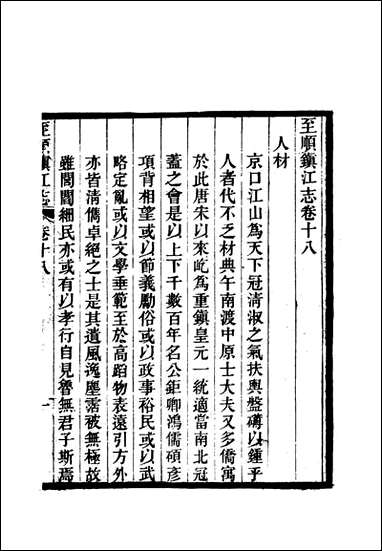 至順鎭江志卷十八
人材
京口江山爲天下冠淸淑之氣扶輿盤礴以鍾乎
人者代不乏材典午南渡中原士大夫又多僑寓
於此唐宋以來屹爲重鎭皇元一統適當南北冠
蓋之會是以上下千數百年名公鉅卿鴻儒碩彥
項背相望或以節義勵俗或以政事裕民或以武
略定亂或以文學垂範至於高蹈物表遠引方外
亦皆淸儁卓絕之士是其遺風逸塵霑被無極故
雖閭閻細民亦或有以孝行自見魯無君子斯焉
至順鎭江志 卷十八 一